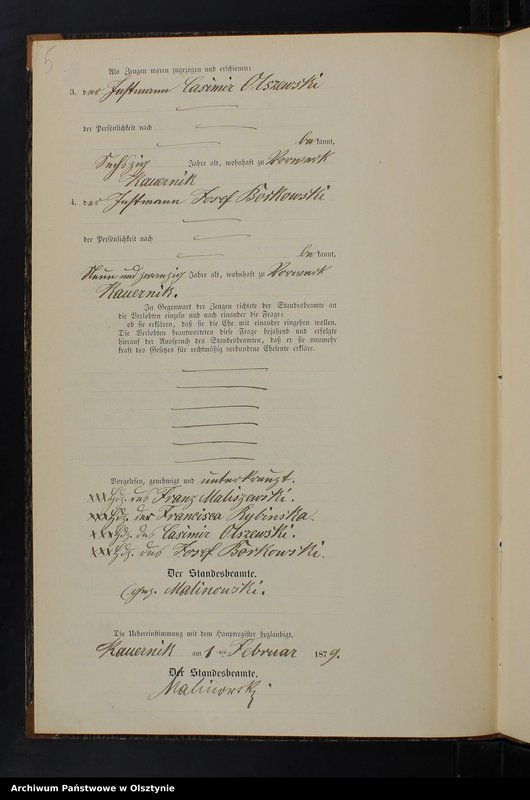 5
Als Zeugen waren zugezogen und erschienen:
3. der Instmann Casimir Olszewski
der Persönlichkeit nach
bekannt,
Sechszig Jahre alt, wohnhaft zu Vorwerk
Kauernik
4. der Instmann Josef Borkowski
der Persönlichkeit nach
bekannt,
Neun und zwanzig Jahre alt, wohnhaft zu Vorwerk
Kauernik.
In Gegenwart der Zeugen richtete der Standesbeamte an
die Verlobten einzeln und nach einander die Frage:
ob sie erklären, daß sie die Ehe mit einander eingehen wollen.
Die Verlobten beantworteten diese Frage bejahend und erfolgte
hierauf der Ausspruch des Standesbeamten, daß er sie nunmehr
kraft des Gesetzes für rechtmäßig verbundene Eheleute erkläre.
Vorgelesen, genehmigt und unterkreuzt.
XXX Hdz. des Franz Maliszewski.
XXX Hdz. der Francisca Rybinska.
XXX Hdz. des Casimir Olszewski.
XXX Hdz. des Josef Borkowski.
Der Standesbeamte.
gez. Malinowski.
Die Uebereinstimmung mit dem Hauptregister beglaubigt.
Kauernik am 1 ten Februar 1879.
Der Standesbeamte.
Malinowski
Archiwum Państwowe w Olsztynie